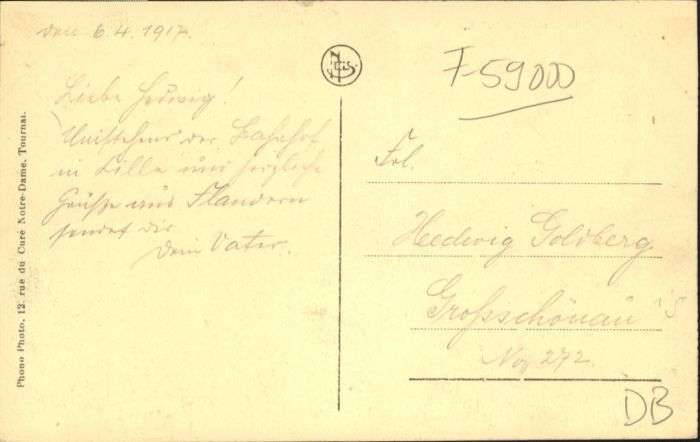 den 6.4.1917.
Liebe Hedwig!
Umstehend der Bahnhof
in Lille und herzliche
Grüße aus Flandern
sendet dir
Dein Vater.
Phono Photo, 12, rue du Curé Notre-Dame, Tournai.
F-59000
Frl.
Hedwig Goldberg.
Großschönau i/S
No 272.
DB